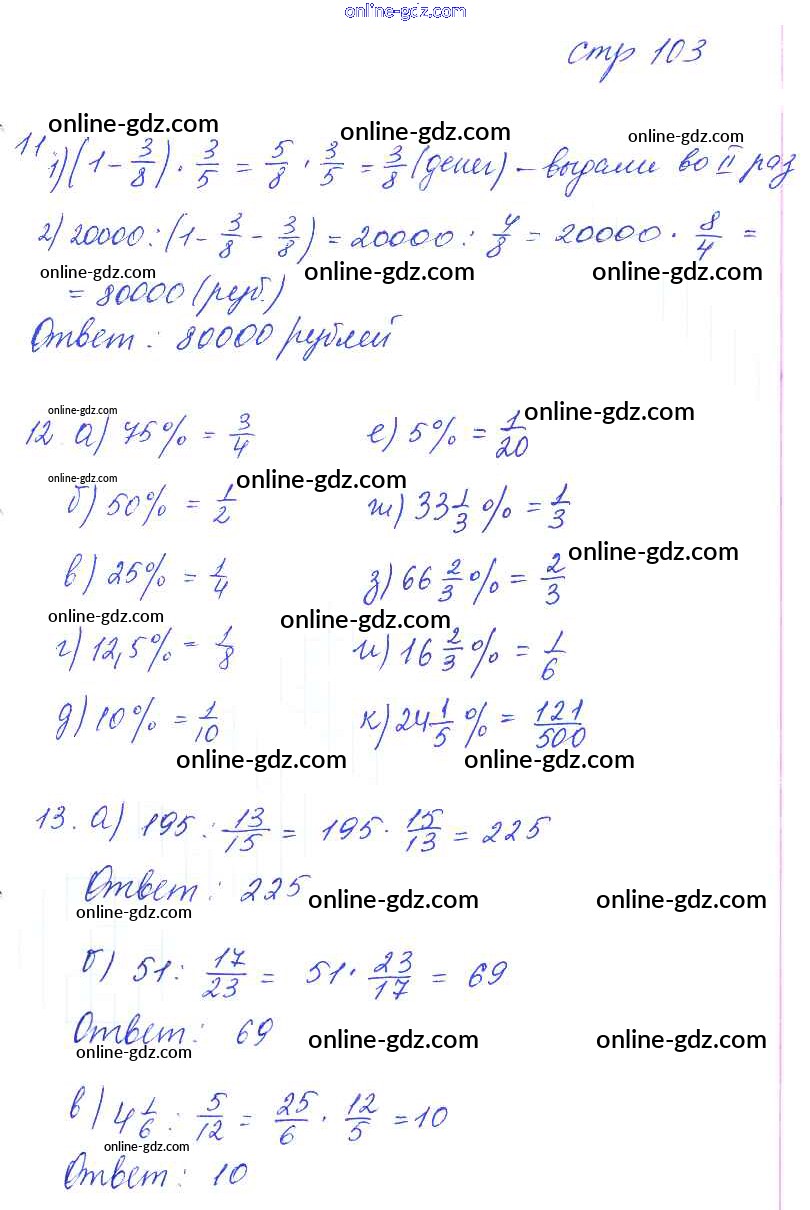 online-gdz.com
стр 103
online-gdz.com online-gdz.com online-gdz.com
11 1) (1 - 3/8) · 3/5 = 5/8 · 3/5 = 3/8 (денег) - выдали во II раз
2) 20000 : (1 - 3/8 - 3/8) = 20000 : 4/8 = 20000 · 8/4 =
online-gdz.com online-gdz.com online-gdz.com
= 80000 (руб.)
Ответ: 80000 рублей
online-gdz.com online-gdz.com
12 а) 75% = 3/4 е) 5% = 1/20
online-gdz.com online-gdz.com
б) 50% = 1/2 ж) 33 1/3 % = 1/3
online-gdz.com
в) 25% = 1/4 з) 66 2/3 % = 2/3
online-gdz.com online-gdz.com
г) 12,5% = 1/8 и) 16 2/3 % = 1/6
д) 10% = 1/10 к) 24 1/5 % = 121/500
online-gdz.com online-gdz.com
13. а) 195 : 13/15 = 195 · 15/13 = 225
Ответ: 225
online-gdz.com online-gdz.com online-gdz.com
б) 51 : 17/23 = 51 · 23/17 = 69
Ответ: 69
online-gdz.com online-gdz.com online-gdz.com
в) 4 1/6 : 5/12 = 25/6 · 12/5 = 10
online-gdz.com
Ответ: 10